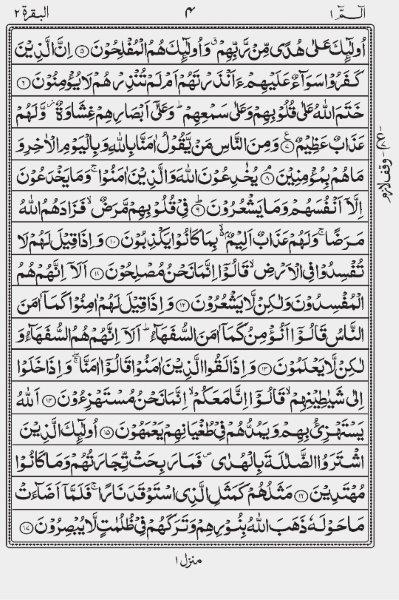 الٓمّٓ ١
٤
البقرة ٢
اُولٰٓئِكَ عَلٰى هُدًى مِّنْ رَّبِّهِمْ ۗ وَاُولٰٓئِكَ هُمُ الْمُفْلِحُوْنَ ۝٥ اِنَّ الَّذِيْنَ
كَفَرُوْا سَوَآءٌ عَلَيْهِمْ ءَاَنْذَرْتَهُمْ اَمْ لَمْ تُنْذِرْهُمْ لَا يُؤْمِنُوْنَ ۝٦
خَتَمَ اللّٰهُ عَلٰى قُلُوْبِهِمْ وَعَلٰى سَمْعِهِمْ ۗ وَعَلٰٓى اَبْصَارِهِمْ غِشَاوَةٌ ۖ وَّلَهُمْ
عَذَابٌ عَظِيْمٌ ۝٧ وَمِنَ النَّاسِ مَنْ يَّقُوْلُ اٰمَنَّا بِاللّٰهِ وَبِالْيَوْمِ الْاٰخِرِ وَ
مَا هُمْ بِمُؤْمِنِيْنَ ۝٨ يُخٰدِعُوْنَ اللّٰهَ وَالَّذِيْنَ اٰمَنُوْا ۚ وَمَا يَخْدَعُوْنَ
اِلَّآ اَنْفُسَهُمْ وَمَا يَشْعُرُوْنَ ۝٩ فِيْ قُلُوْبِهِمْ مَّرَضٌ ۙ فَزَادَهُمُ اللّٰهُ
مَرَضًا ۚ وَلَهُمْ عَذَابٌ اَلِيْمٌ ۢ ۙ بِمَا كَانُوْا يَكْذِبُوْنَ ۝١٠ وَاِذَا قِيْلَ لَهُمْ لَا
تُفْسِدُوْا فِى الْاَرْضِ ۙ قَالُوْٓا اِنَّمَا نَحْنُ مُصْلِحُوْنَ ۝١١ اَلَآ اِنَّهُمْ هُمُ
الْمُفْسِدُوْنَ وَلٰكِنْ لَّا يَشْعُرُوْنَ ۝١٢ وَاِذَا قِيْلَ لَهُمْ اٰمِنُوْا كَمَآ اٰمَنَ
النَّاسُ قَالُوْٓا اَنُؤْمِنُ كَمَآ اٰمَنَ السُّفَهَآءُ ۗ اَلَآ اِنَّهُمْ هُمُ السُّفَهَآءُ وَ
لٰكِنْ لَّا يَعْلَمُوْنَ ۝١٣ وَاِذَا لَقُوا الَّذِيْنَ اٰمَنُوْا قَالُوْٓا اٰمَنَّا ۖۚ وَاِذَا خَلَوْا
اِلٰى شَيٰطِيْنِهِمْ ۙ قَالُوْٓا اِنَّا مَعَكُمْ ۙ اِنَّمَا نَحْنُ مُسْتَهْزِءُوْنَ ۝١٤ اَللّٰهُ
يَسْتَهْزِئُ بِهِمْ وَيَمُدُّهُمْ فِيْ طُغْيَانِهِمْ يَعْمَهُوْنَ ۝١٥ اُولٰٓئِكَ الَّذِيْنَ
اشْتَرَوُا الضَّلٰلَةَ بِالْهُدٰى ۪ فَمَا رَبِحَتْ تِّجَارَتُهُمْ وَمَا كَانُوْا
مُهْتَدِيْنَ ۝١٦ مَثَلُهُمْ كَمَثَلِ الَّذِى اسْتَوْقَدَ نَارًا ۚ فَلَمَّآ اَضَآءَتْ
مَا حَوْلَهٗ ذَهَبَ اللّٰهُ بِنُوْرِهِمْ وَتَرَكَهُمْ فِيْ ظُلُمٰتٍ لَّا يُبْصِرُوْنَ ۝١٧
وقف لازم
منزل ١